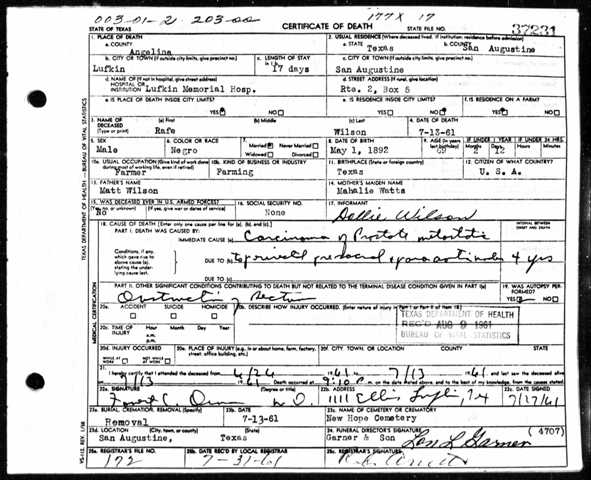 003-01-2 203-00 177X 17
STATE OF TEXAS CERTIFICATE OF DEATH 37231
1. PLACE OF DEATH 2. USUAL RESIDENCE (Where deceased lived. If institution: residence before admission)
a. COUNTY Angelina a. STATE Texas b. COUNTY San Augustine
b. CITY OR TOWN (If outside city limits, give precinct no.) c. LENGTH OF STAY c. CITY OR TOWN (If outside city limits, give precinct no.)
Lufkin 17 days San Augustine
d. NAME OF (If not in hospital, give street address) d. STREET ADDRESS (If rural, give location)
HOSPITAL OR INSTITUTION Lufkin Memorial Hosp. Rte. 2, Box 5
e. IS PLACE OF DEATH INSIDE CITY LIMITS? e. IS RESIDENCE INSIDE CITY LIMITS? f. IS RESIDENCE ON A FARM?
YES NO YES NO YES NO
3. NAME OF DECEASED (a) First (b) Middle (c) Last 4. DATE OF DEATH
(Type or print) Rafe Wilson 7-13-61
5. SEX 6. COLOR OR RACE 7. Married Never Married 8. DATE OF BIRTH 9. AGE (In years last birthday) IF UNDER 1 YEAR IF UNDER 24 HRS.
Male Negro Widowed Divorced May 1, 1892 69 Months 2 Days 12 Hours Minutes
10a. USUAL OCCUPATION (Give kind of work done during most of working life, even if retired) 10b. KIND OF BUSINESS OR INDUSTRY 11. BIRTHPLACE (State or foreign country) 12. CITIZEN OF WHAT COUNTRY?
Farmer Farming Texas U. S. A.
13. FATHER'S NAME 14. MOTHER'S MAIDEN NAME
Matt Wilson Mahalie Watts
15. WAS DECEASED EVER IN U.S. ARMED FORCES? 16. SOCIAL SECURITY NO. 17. INFORMANT
(Yes, no, or unknown) (If yes, give war or dates of service)
No None Dellie Wilson
18. CAUSE OF DEATH (Enter only one cause per line for (a), (b), and (c).) INTERVAL BETWEEN ONSET AND DEATH
PART I. DEATH WAS CAUSED BY:
IMMEDIATE CAUSE (a) Carcinoma of Prostate
Conditions, if any, which gave rise to above cause (a), stating the underlying cause last. DUE TO (b) 4 yrs
DUE TO (c)
PART II. OTHER SIGNIFICANT CONDITIONS CONTRIBUTING TO DEATH BUT NOT RELATED TO THE TERMINAL DISEASE CONDITION GIVEN IN PART I(a) 19. WAS AUTOPSY PERFORMED?
Obstruction of Rectum YES NO
20a. ACCIDENT SUICIDE HOMICIDE 20b. DESCRIBE HOW INJURY OCCURRED. (Enter nature of injury in Part I or Part II of item 18.)
TEXAS DEPARTMENT OF HEALTH
REC'D AUG 9 1961
BUREAU OF VITAL STATISTICS
20c. TIME OF INJURY Hour Month Day Year
a.m.
p.m.
20d. INJURY OCCURRED 20e. PLACE OF INJURY (e.g. in or about home, farm, factory, street, office building, etc.) 20f. CITY, TOWN, OR LOCATION COUNTY STATE
WHILE AT WORK NOT WHILE AT WORK
21. I hereby certify that I attended the deceased from 6/26 1961 to 7/13 1961 and last saw the deceased
7/13 1961 Death occurred at 9:10 P. m. on the date stated above, and to the best of my knowledge, from the causes stated.
22a. SIGNATURE (Degree or title) 22b. ADDRESS 22c. DATE SIGNED
M D 1111 Ellis Lufkin, Tx 7/17/61
23a. BURIAL, CREMATION, REMOVAL (Specify) 23b. DATE 23c. NAME OF CEMETERY OR CREMATORY
Removal 7-13-61 New Hope Cemetery
23d. LOCATION (City, town, or county) (State) 24. FUNERAL DIRECTOR'S SIGNATURE (4707)
San Augustine, Texas Garner & Son Garner
25a. REGISTRAR'S FILE NO. 25b. DATE REC'D BY LOCAL REGISTRAR 25c. REGISTRAR'S SIGNATURE
172 7-31-61
TEXAS DEPARTMENT OF HEALTH—BUREAU OF VITAL STATISTICS
MEDICAL CERTIFICATION